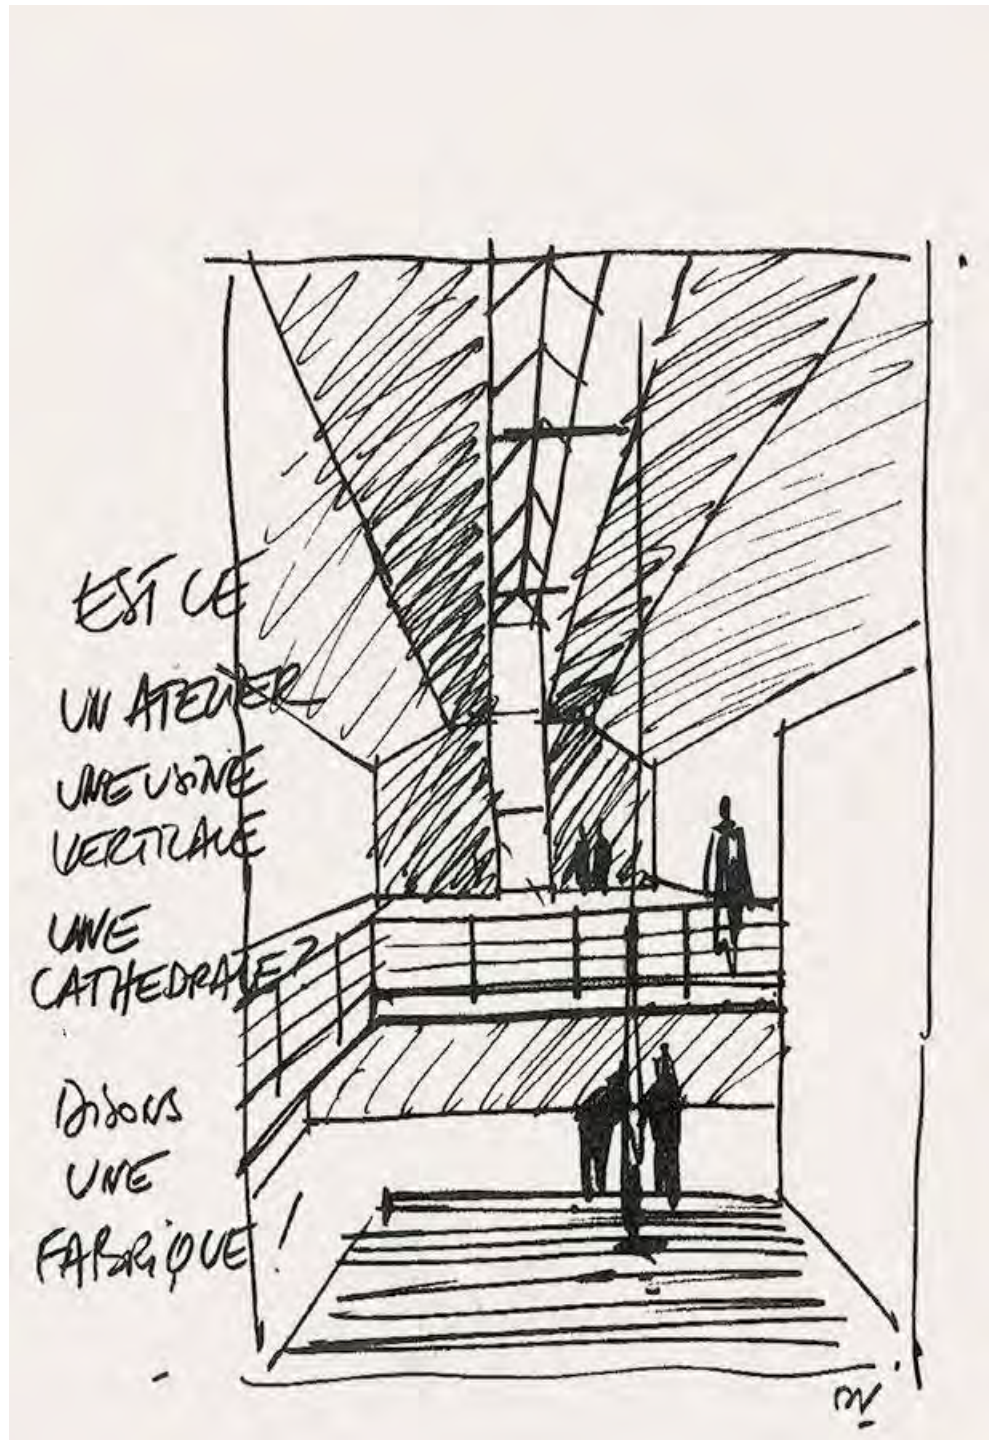 EST CE
UN ATELIER
UNE USINE
VERTICALE
UNE
CATHEDRALE?
DISONS
UNE
FABRIQUE!